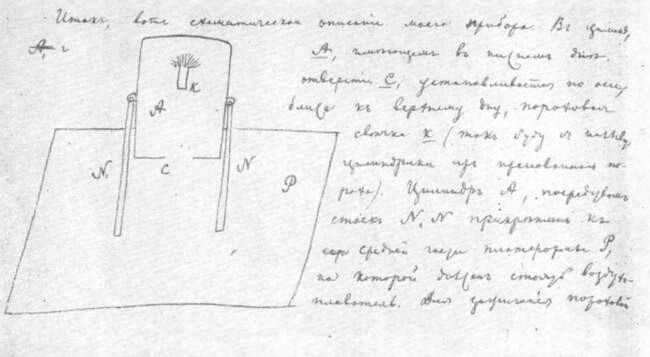 Итакъ, вотъ схематическое описаніе моего прибора. Въ цилинд,
А, имѣющемъ въ нижнемъ днѣ
отверстіе С, устанавливается по оси,
ближе къ верхнему дну, пороховая
свѣчка К (такъ буду я назыв.
цилиндрики изъ прессованнаго по-
роха). Цилиндръ А, посредствомъ
стоекъ N, N прикрѣпленъ къ
средней части платформы P,
на которой долженъ стоять воздухо-
плаватель. Для зажиганія пороховой
K
A
C
N
N
P